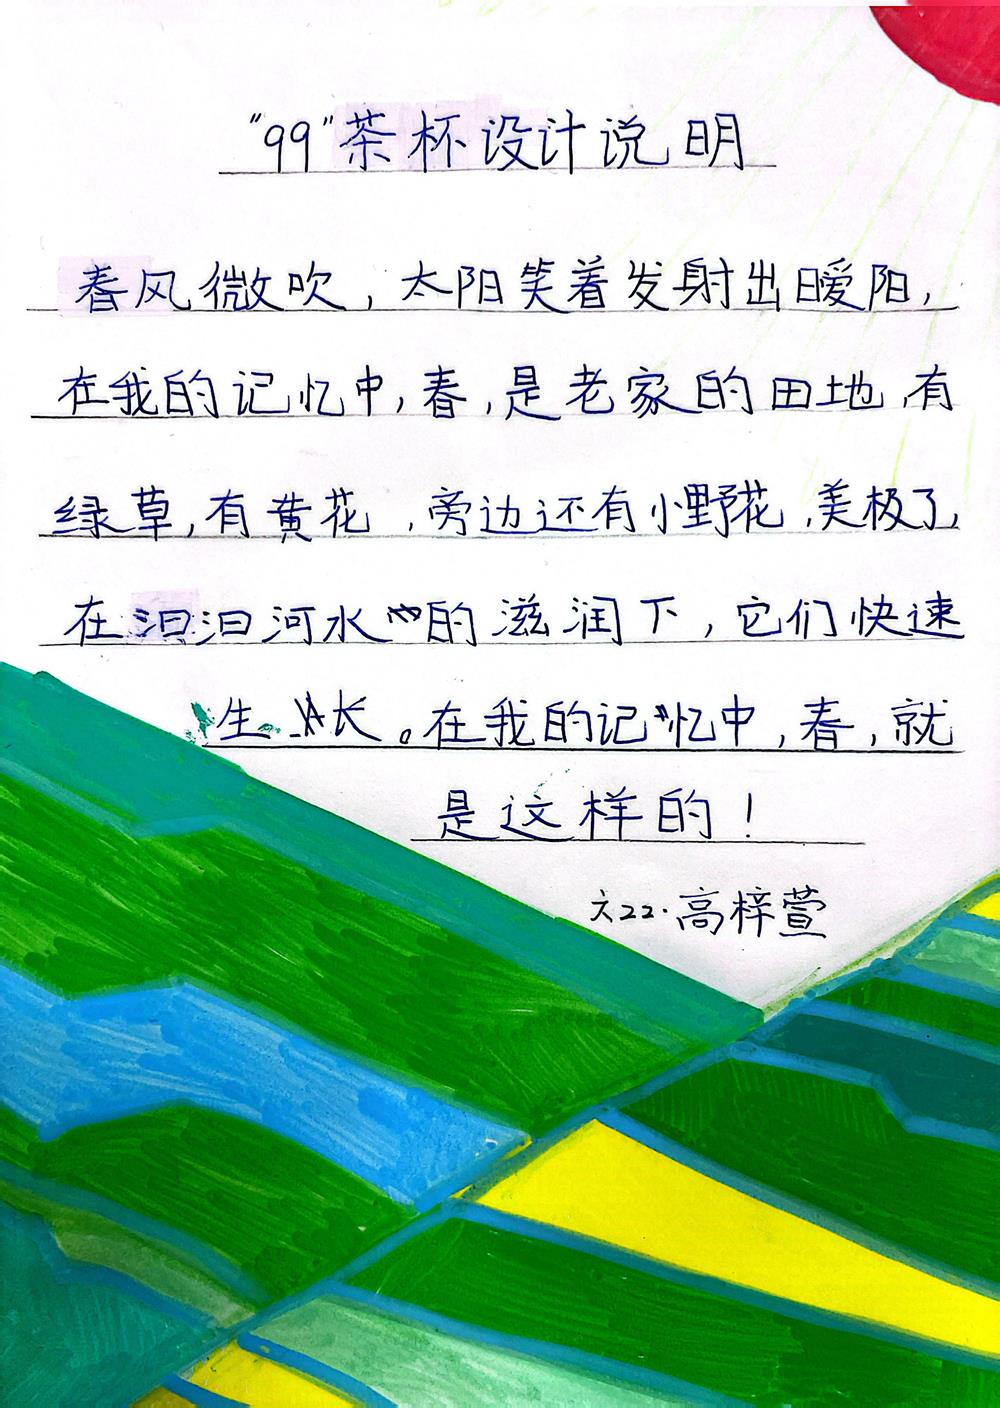 "99"茶杯设计说明
春风微吹，太阳笑着发射出暧阳，
在我的记忆中，春，是老家的田地，有
绿草，有黄花，旁边还有小野花，美极了，
在汩汩河水的滋润下，它们快速
生长。在我的记忆中，春，就
是这样的！
六22·高梓萱